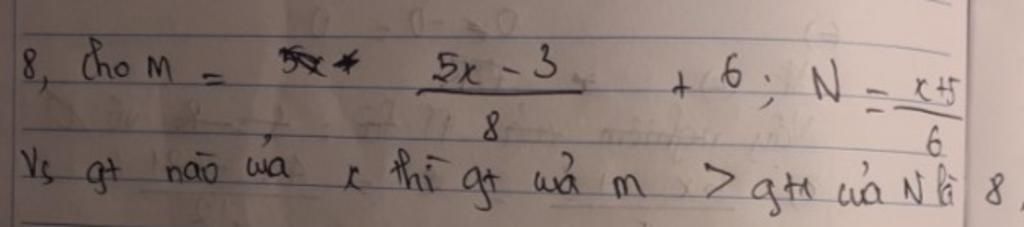 8, Cho M = (5x - 3)/8 + 6; N = (x+5)/6
Vs gt nào của x thì gt của m > gtri của N là 8